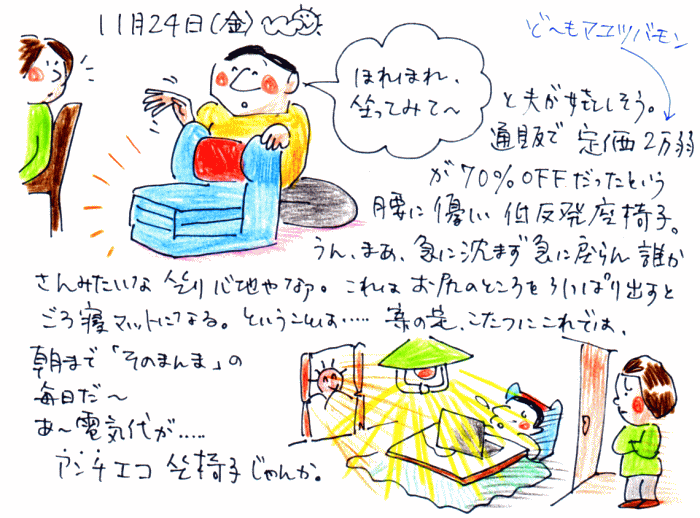 11月24日(金)
ほれほれ、
坐ってみて〜
ど〜もアユツバーモン
と夫が嬉しそう。
通販で 定価2万弱
が70%OFFだったという
腰に優しい低反発座椅子。
うん、まあ、急に沈まず急に戻らん 誰か
さんみたいな坐り心地やなァ。これは お尻のところをひっぱり出すと
ごろ寝マットになる。ということは‥‥ 案の定、こたつにこれでは、
朝まで「そのまんま」の
毎日だ〜
あ〜電気代が‥‥‥
アンチエコ坐椅子じゃんか。